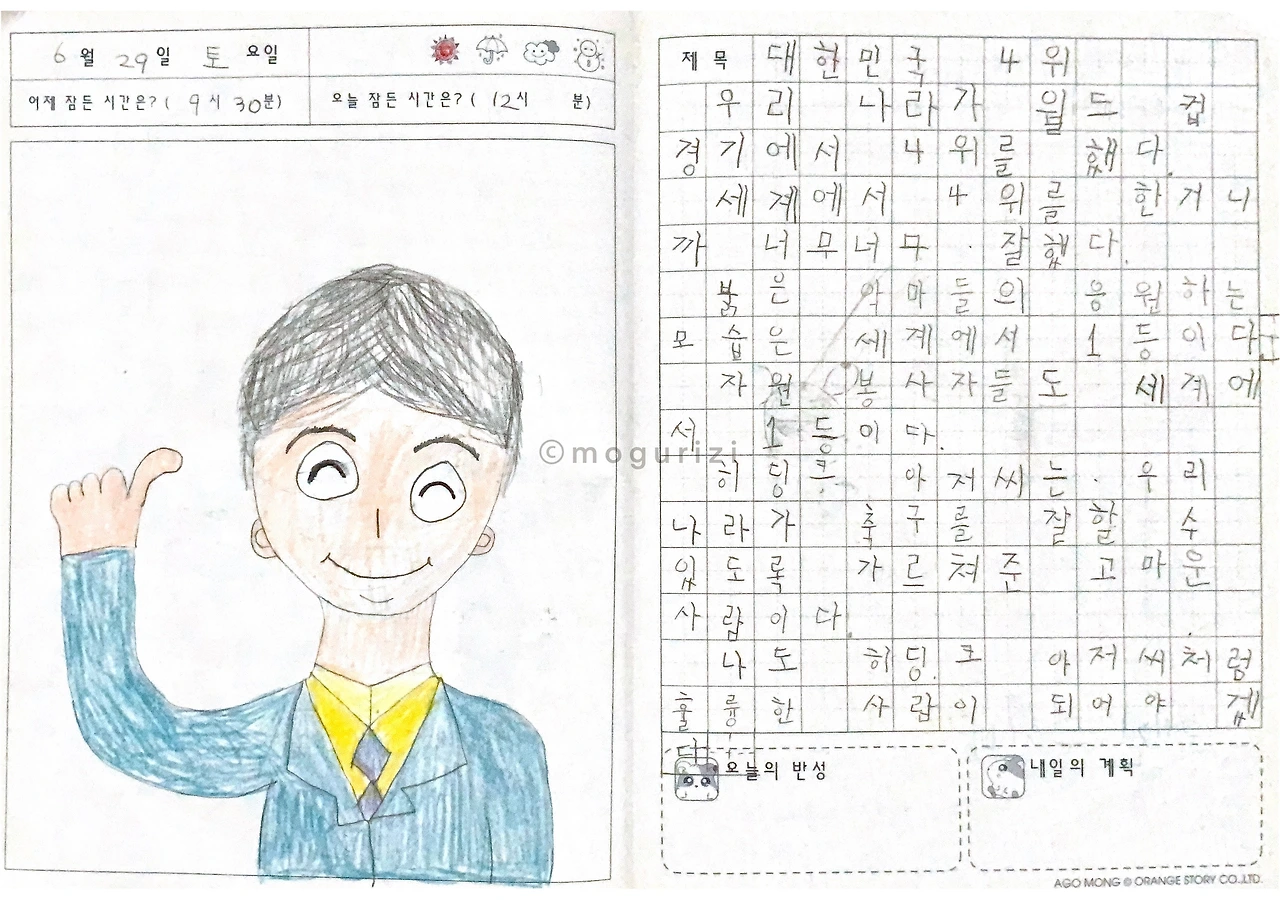 6월 29일 토요일
어제 잠든 시간은? ( 9시 30분) 오늘 잠든 시간은? ( 12시 분)
제 목 대한민국 4위
우리 나라가 월드 컵
경기에서 4위를 했다.
세계에서 4위를 한거니
까 너무너무 잘했다.
붉은 악마들의 응원하는
모습은 세계에서 1등이다.
자원 봉사자들도 세계에
서 1등이다.
히딩크 아저씨는 우리
나라가 축구를 잘할 수
있도록 가르쳐준 고마운
사람이다.
나도 히딩크 아저씨처럼
훌륭한 사람이 되어야 겠
다.
오늘의 반성 내일의 계획
AGO MONG © ORANGE STORY CO.,LTD.
©mogurizi